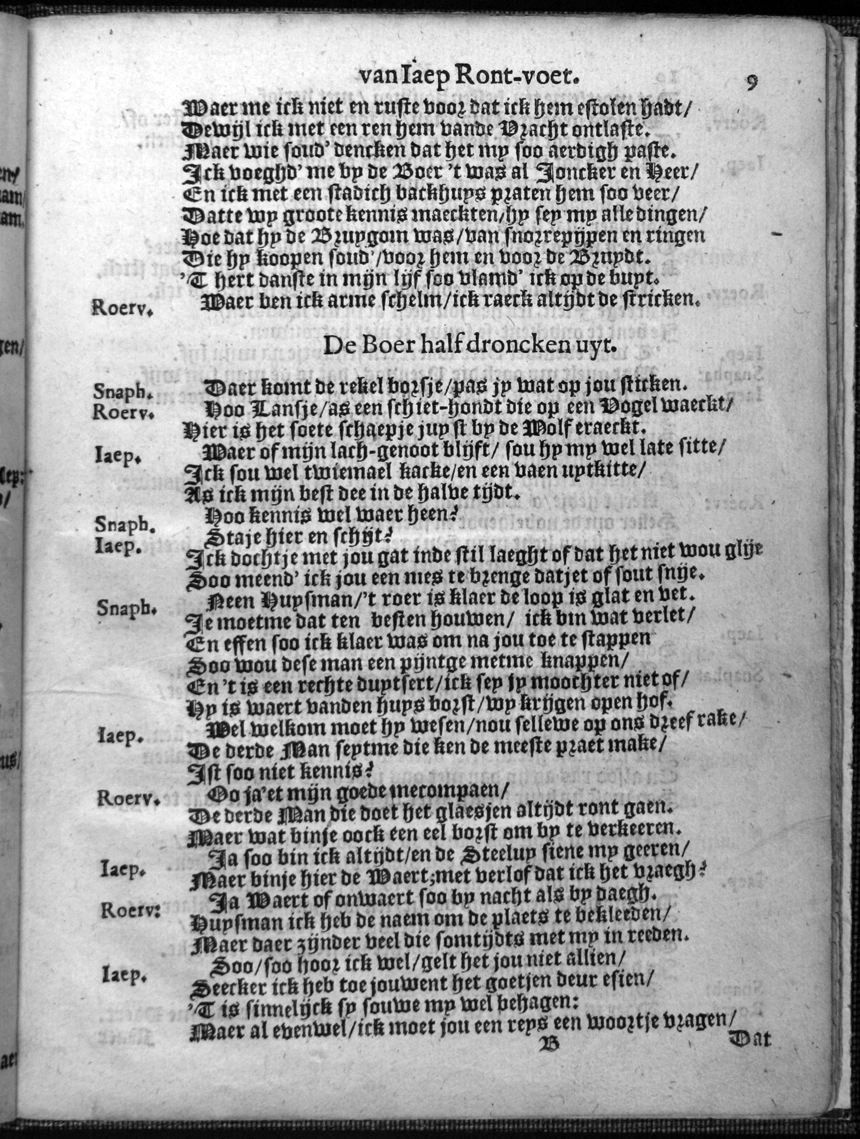 van Iaep Ront-voet. 9
Waer me ick niet en ruste voor dat ick hem estolen hadt/
Dewijl ick met een ren hem vande Vracht ontlaste.
Maer wie soud' dencken dat het my soo aerdigh paste.
Ick voeghd' me by de Boer 't was al Joncker en Heer/
En ick met een stadich backhuys praten hem soo veer/
Datte wy groote kennis maeckten/hy sey my alle dingen/
Hoe dat hy de Bruygom was/van snorrepijpen en ringen
Die hy koopen soud'/voor hem en voor de Bruydt.
'T hert danste in mijn lijf soo vlamd' ick op de buyt.
Roerv. Waer ben ick arme schelm/ick raeck altijdt de stricken.
De Boer half droncken uyt.
Snaph. Daer komt de rekel borsje/pas jy wat op jou sticken.
Roerv. Hoo Lansje/as een schiet-hondt die op een Vogel waeckt/
Hier is het soete schaepje juyst by de Wolf eraeckt.
Iaep. Waer of mijn lach-genoot blijft/ sou hy my wel late sitte/
Ick sou wel twiemael kacke/en een vaen uytkitte/
As ick mijn best dee in de halve tijdt.
Snaph. Hoo kennis wel waer heen?
Iaep. Staje hier en schijt?
Ick dochtje met jou gat inde stil laeght of dat het niet wou glije
Soo meend' ick jou een mes te brenge datjet of sout snije.
Snaph. Neen Huysman/'t roer is klaer de loop is glat en vet.
Je moetme dat ten besten houwen/ ick bin wat verlet/
En effen soo ick klaer was om na jou toe te stappen
Soo wou dese man een pijntge metme knappen/
En 't is een rechte duytsert/ick sey jy moochter niet of/
Hy is waert vanden huys borst/wy krijgen open hof.
Iaep. Wel welkom moet hy wesen/nou sellewe op ons dreef rake/
De derde Man seytme die ken de meeste praet make/
Ist soo niet kennis?
Roerv. Oo ja'et mijn goede mecompaen/
De derde Man die doet het glaesjen altijdt ront gaen.
Maer wat binje oock een eel borst om by te verkeeren.
Iaep. Ja soo bin ick altijdt/en de Steeluy siene my geeren/
Maer binje hier de Waert;met verlof dat ick het vraegh?
Roerv: Ja Waert of onwaert soo by nacht als by daegh.
Huysman ick heb de naem om de plaets te bekleeden/
Maer daer zijnder veel die somtijdts met my in reeden.
Iaep. Soo/soo hoor ick wel/gelt het jou niet allien/
Seecker ick heb toe jouwent het goetjen deur esien/
'T is sinnelijck sy souwe my wel behagen:
Maer al evenwel/ick moet jou een reys een woortje vragen/
B Dat